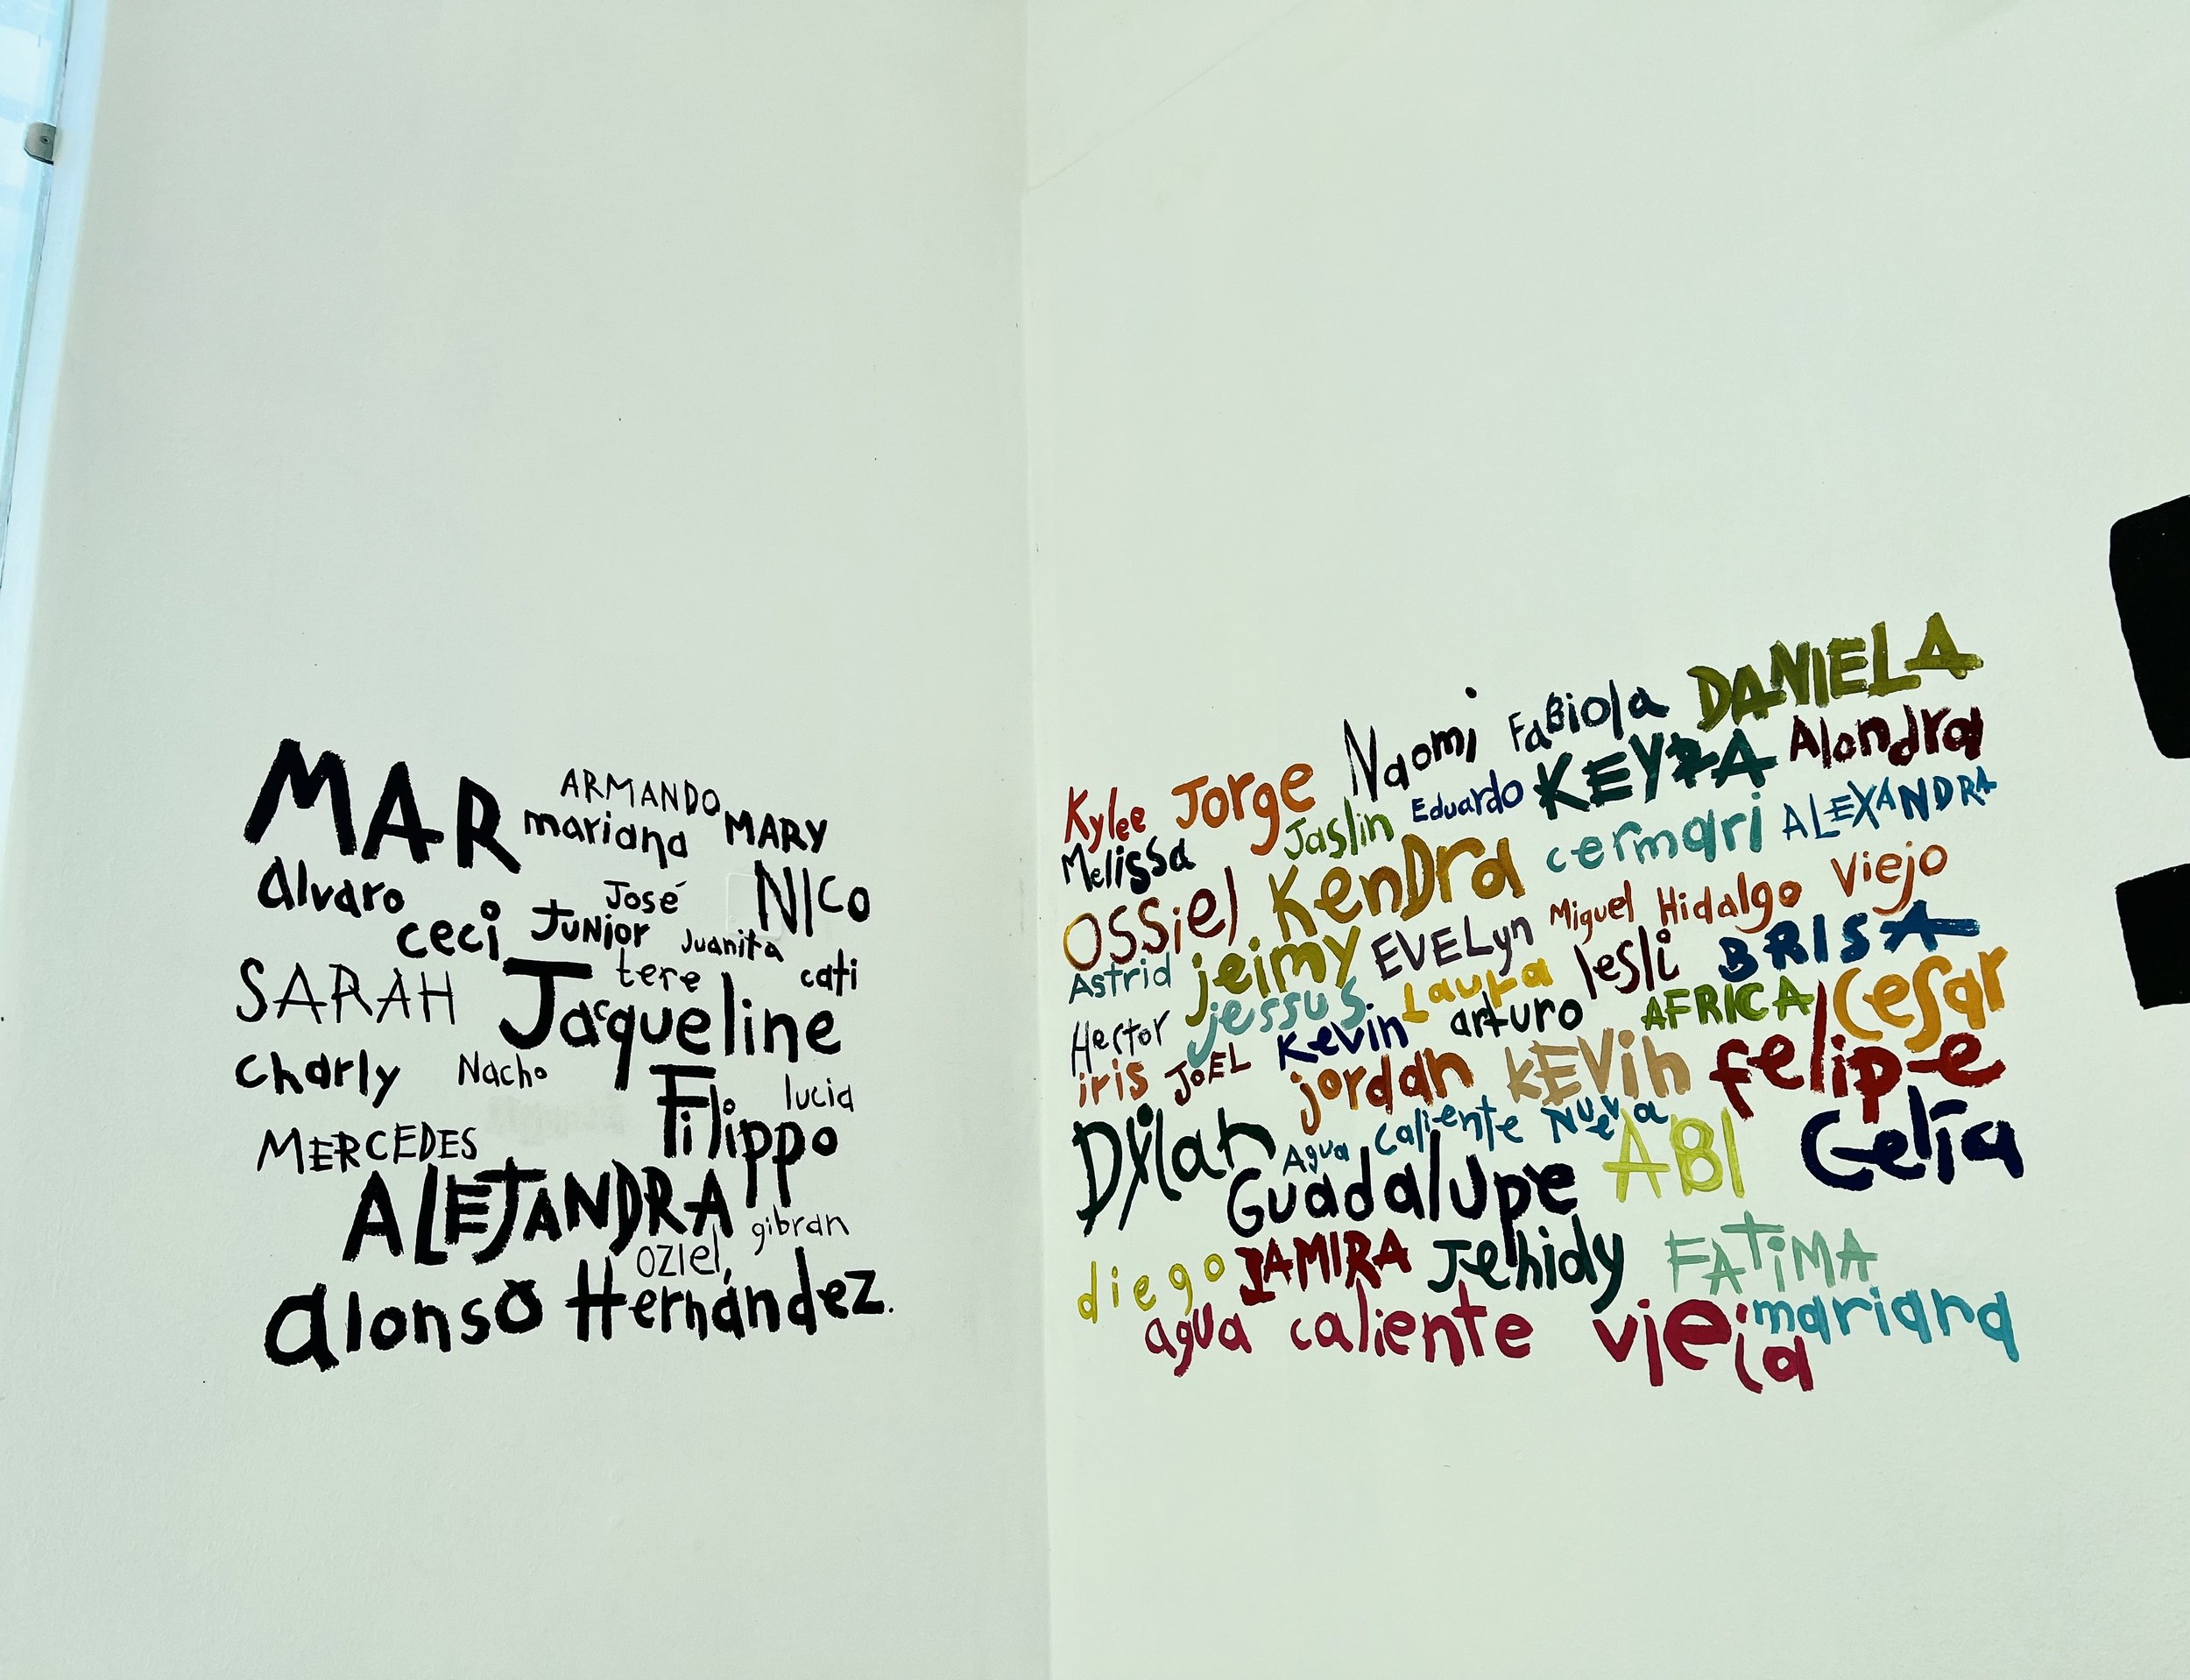 MAR ARMANDO
mariana MARY
alvaro José NICO
ceci JUNior Juanita
SARAH tere cati
Jacqueline
charly Nacho lucia
Filippo
MERCEDES
ALEJANDRA gibran
OZIEL,
alonso Hernández.
Naomi FaBiola DANIELA
Kylee Jorge Eduardo KEYRA Alondra
Melissa Jaslin cermari ALEXANDRA
OSSiel KenDra Miguel Hidalgo Viejo
Astrid jeimy EVELyn lesli BRISA
Hector jessus. Laura arturo AFRICA Cesar
iris JOEL Kevin jordan KEVin felipe
Dylan Agua Caliente Nueva ABI Celia
Guadalupe
diego JAMIRA Jehidy FATiMA
agua caliente vieja mariana